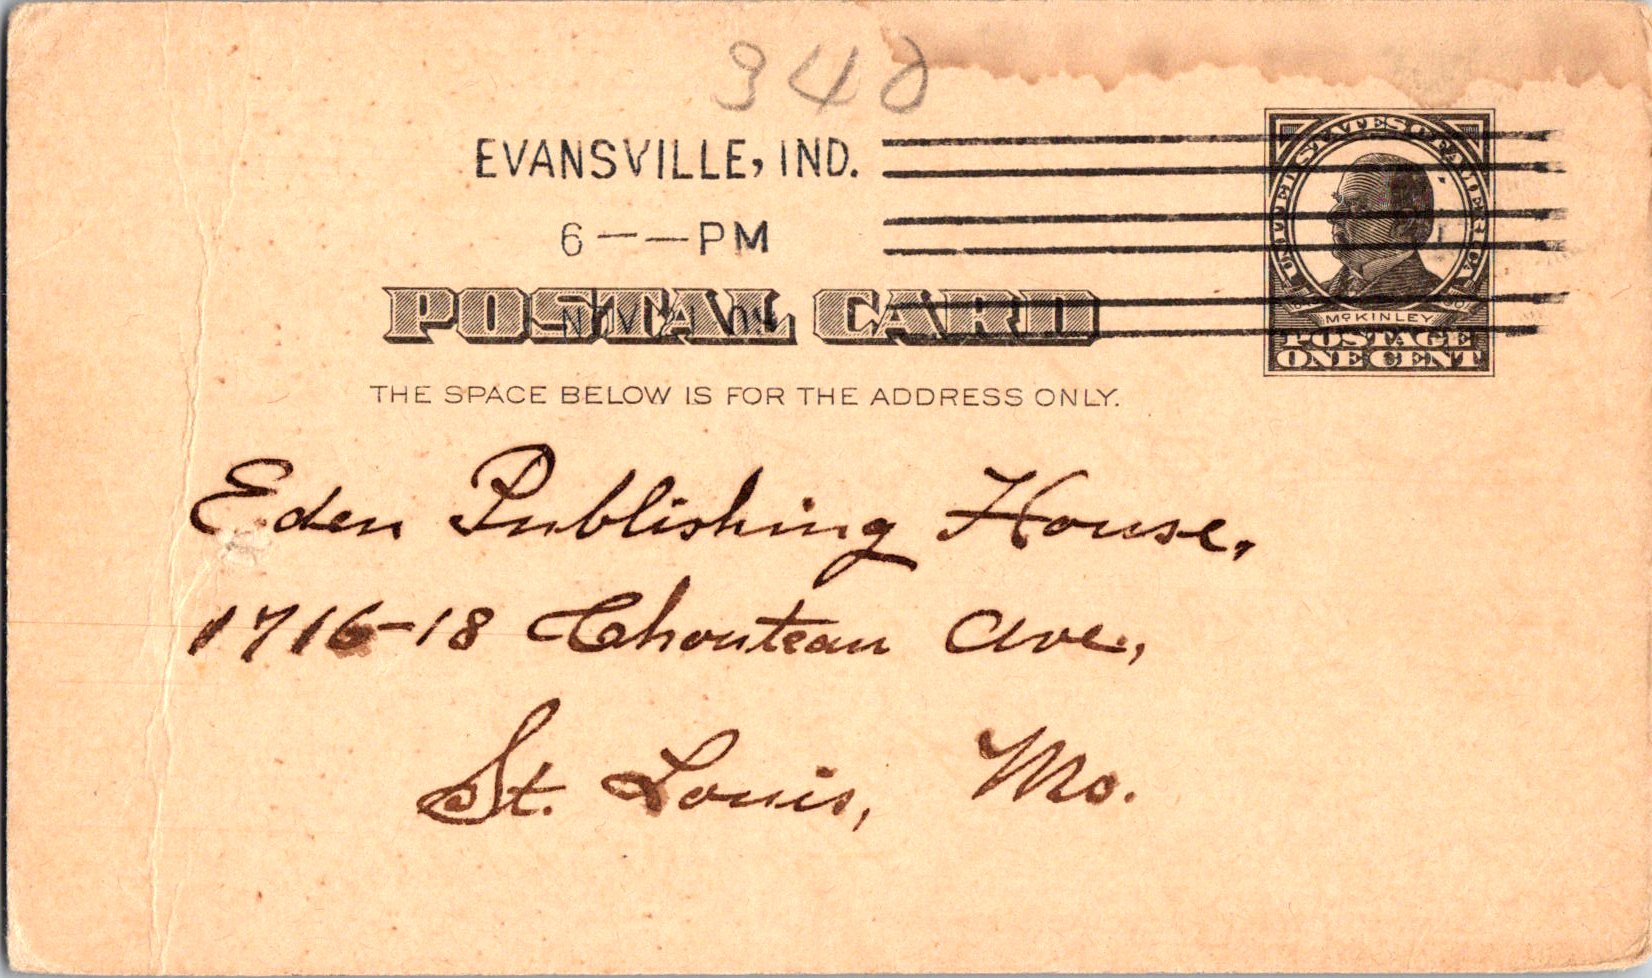 340
EVANSVILLE, IND.
6 — — PM
UNITED STATES OF AMERICA
POSTAL CARD
NOV 21
McKINLEY
POSTAGE
ONE CENT
THE SPACE BELOW IS FOR THE ADDRESS ONLY.
Eden Publishing House,
1716-18 Chouteau Ave.,
St. Louis, Mo.